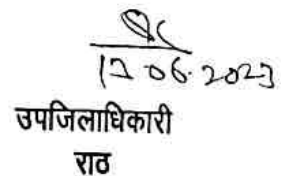 17.06.2023
उपजिलाधिकारी
राठ